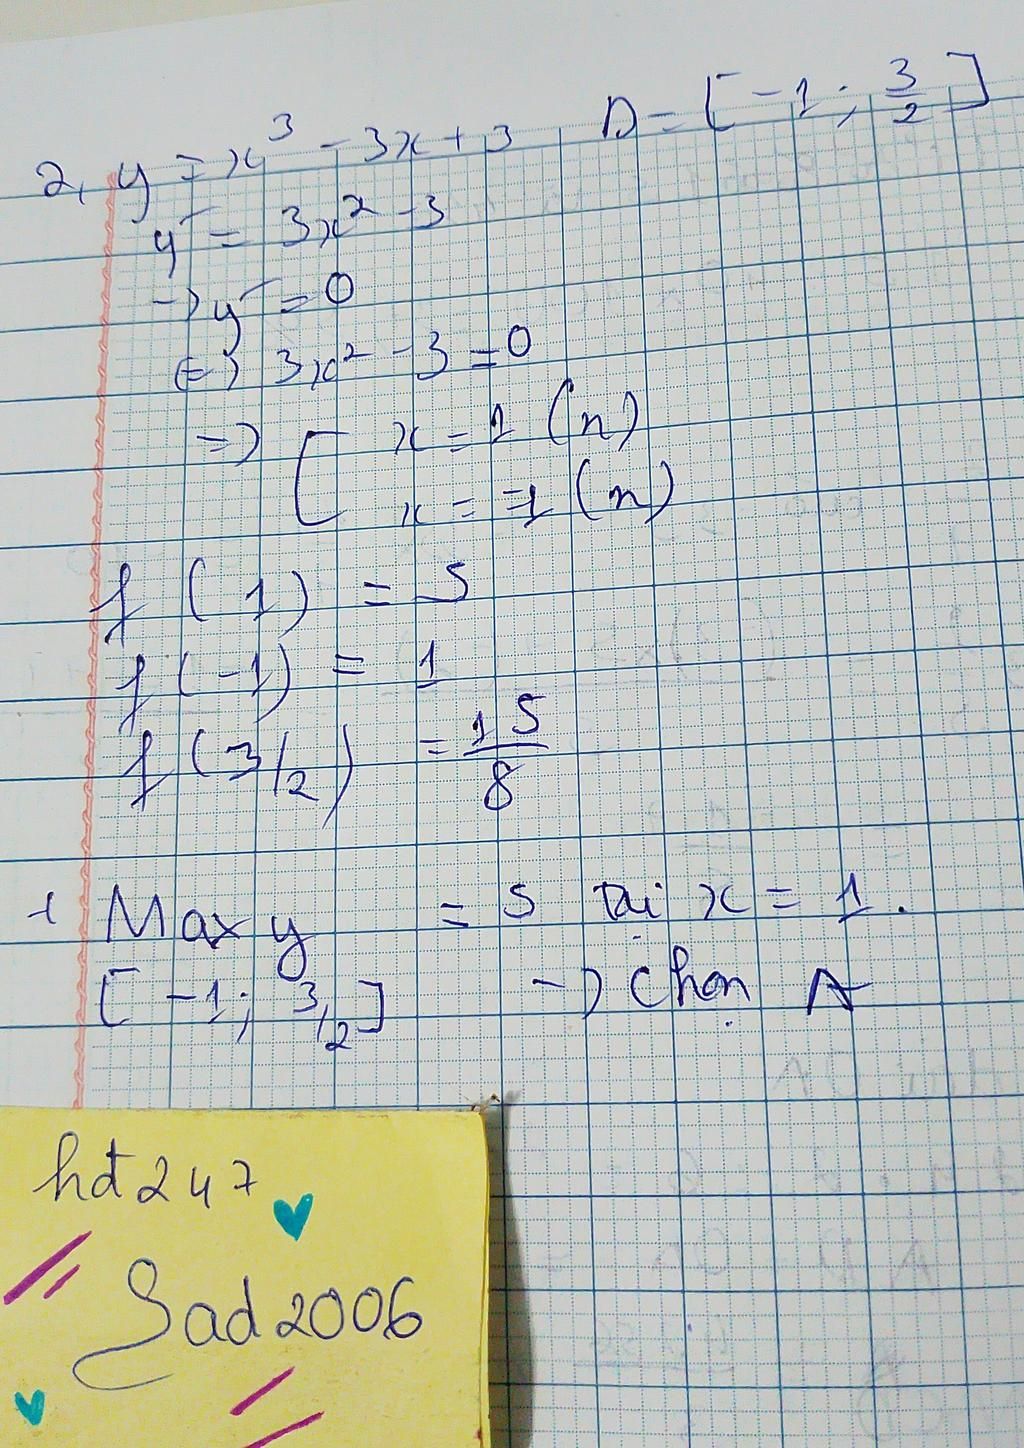 2, y = x³ - 3x + 3 D = [-1; 3/2]
y' = 3x² - 3
→ y' = 0
⇔ 3x² - 3 = 0
=> [ x = 1 (n)
x = -1 (n)
f(1) = 5
f(-1) = 1
f(3/2) = 15/8
Max y = 5 tại x = 1.
[-1; 3/2] → Chọn A
hdt247
Sad2006